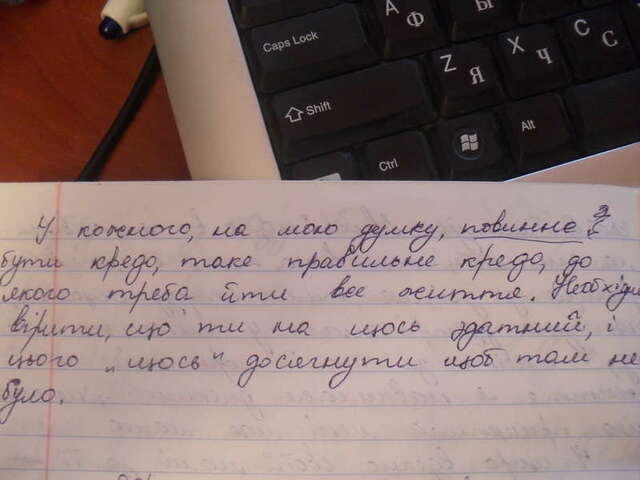 A Ф
Ы
Caps Lock
Z Я
X Ч
C С
Shift
Alt
Ctrl
У кожного, на мою думку, повинне є
бути кредо, таке правильне кредо, до
якого треба йти все життя. Необхідно
вірити, що ти на щось здатний, і
цього „щось" досягнути щоб там не
було.